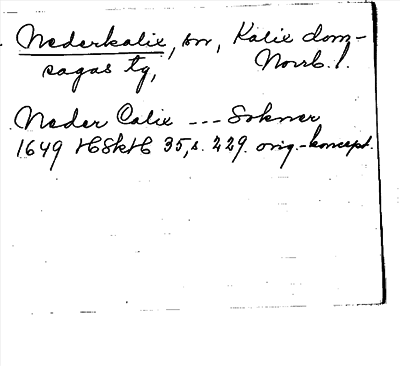 Nederkalix, sn, Kalix dom-
sagas tg, Norrb. l.
Neder Calix --- Sokner
1649 HSkH 35, s. 229. orig.-koncept.